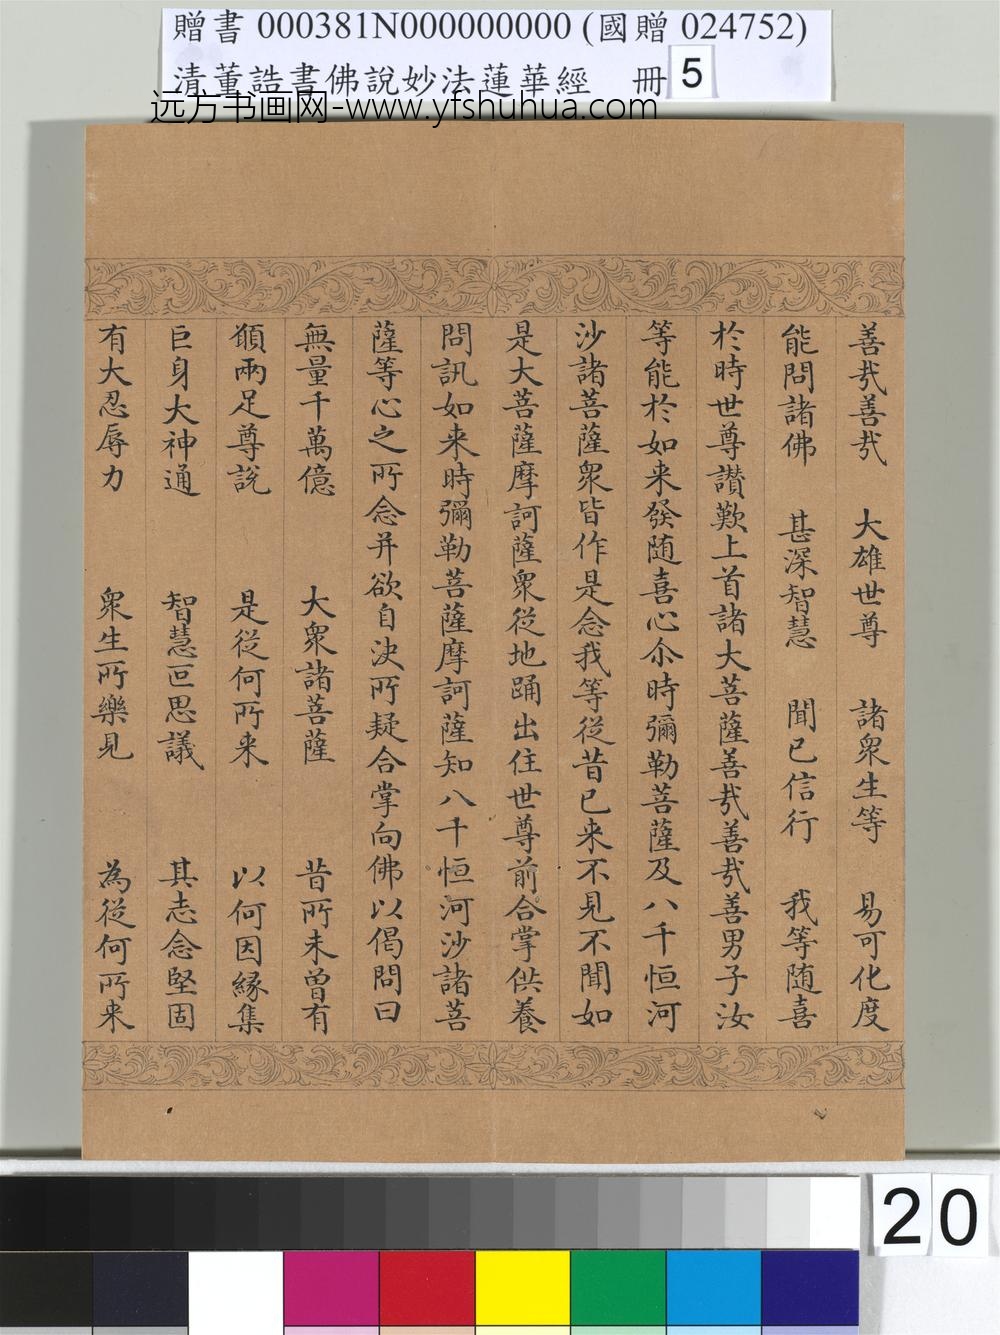 贈書 000381N000000000 (國贈 024752)
清董誥書佛說妙法蓮華經 冊 5
远方书画网-www.yfshuhua.com
善㢤善㢤 大雄世尊 諸衆生等 易可化度
能問諸佛 甚深智慧 聞已信行 我等随喜
於時世尊讃歎上首諸大菩薩善㢤善㢤善男子汝
等能於如来發随喜心尒時彌勒菩薩及八千恒河
沙諸菩薩衆皆作是念我等從昔已来不見不聞如
是大菩薩摩訶薩衆從地踊出住世尊前合掌供養
問訊如来時彌勒菩薩摩訶薩知八千恒河沙諸菩
薩等心之所念并欲自決所疑合掌向佛以偈問曰
無量千萬億 大衆諸菩薩 昔所未曾有
願兩足尊說 是從何所来 以何因緣集
巨身大神通 智慧叵思議 其志念堅固
有大忍辱力 衆生所樂見 為從何所来
20